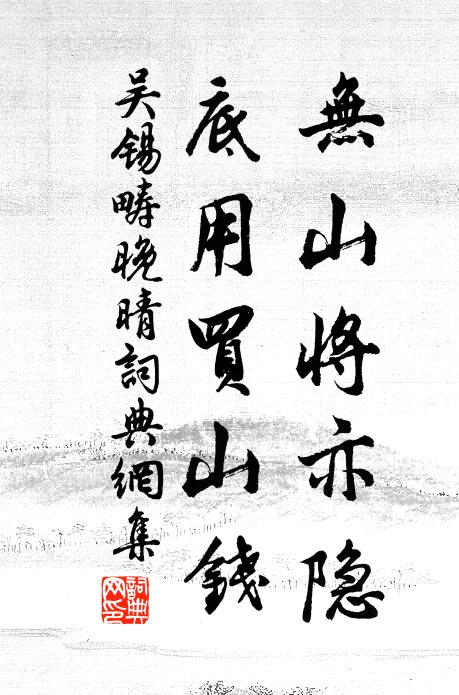 無山將亦隐
底用買山錢
吴錫疇晚晴詞典網集
詞典網印